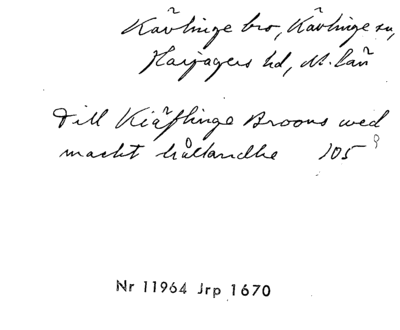 Kävlinge bro, Kävlinge sn,
Harjagers hd, M. län
Till Kiäflinge Broons wed
macht hållandhe 105
Nr 11964 Jrp 1670